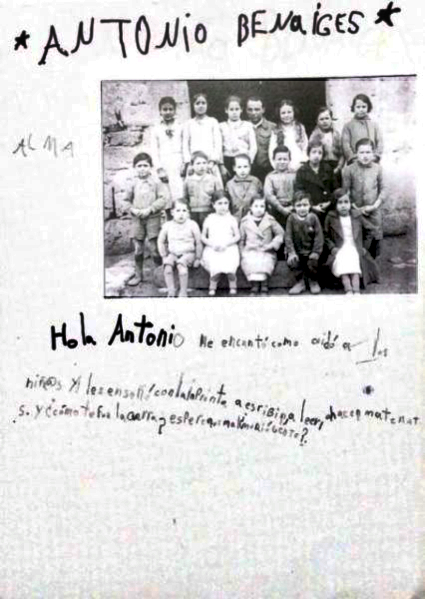 * ANTONIO BENAIGES *
ALMA
Hola Antonio Me encantó como cuidó a los
niñ@s Y les enseñó con la imprenta a escribir, a leer, a hacer matemat
s. Y ¿cómo te fue la guerra? espero que